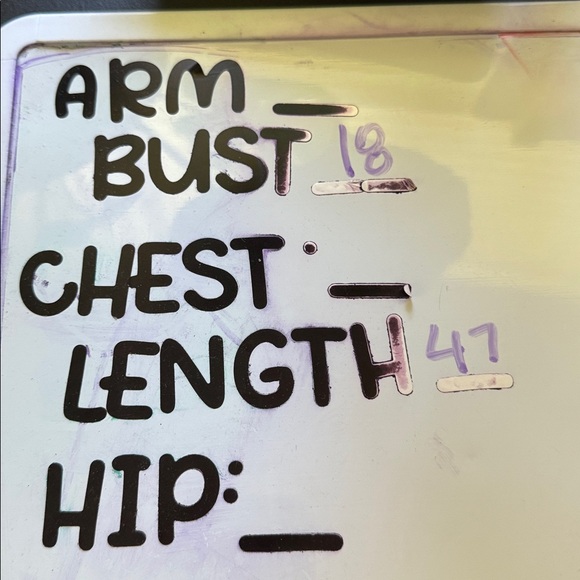 ARM __
BUST 18
CHEST: __
LENGTH 47
HIP: __